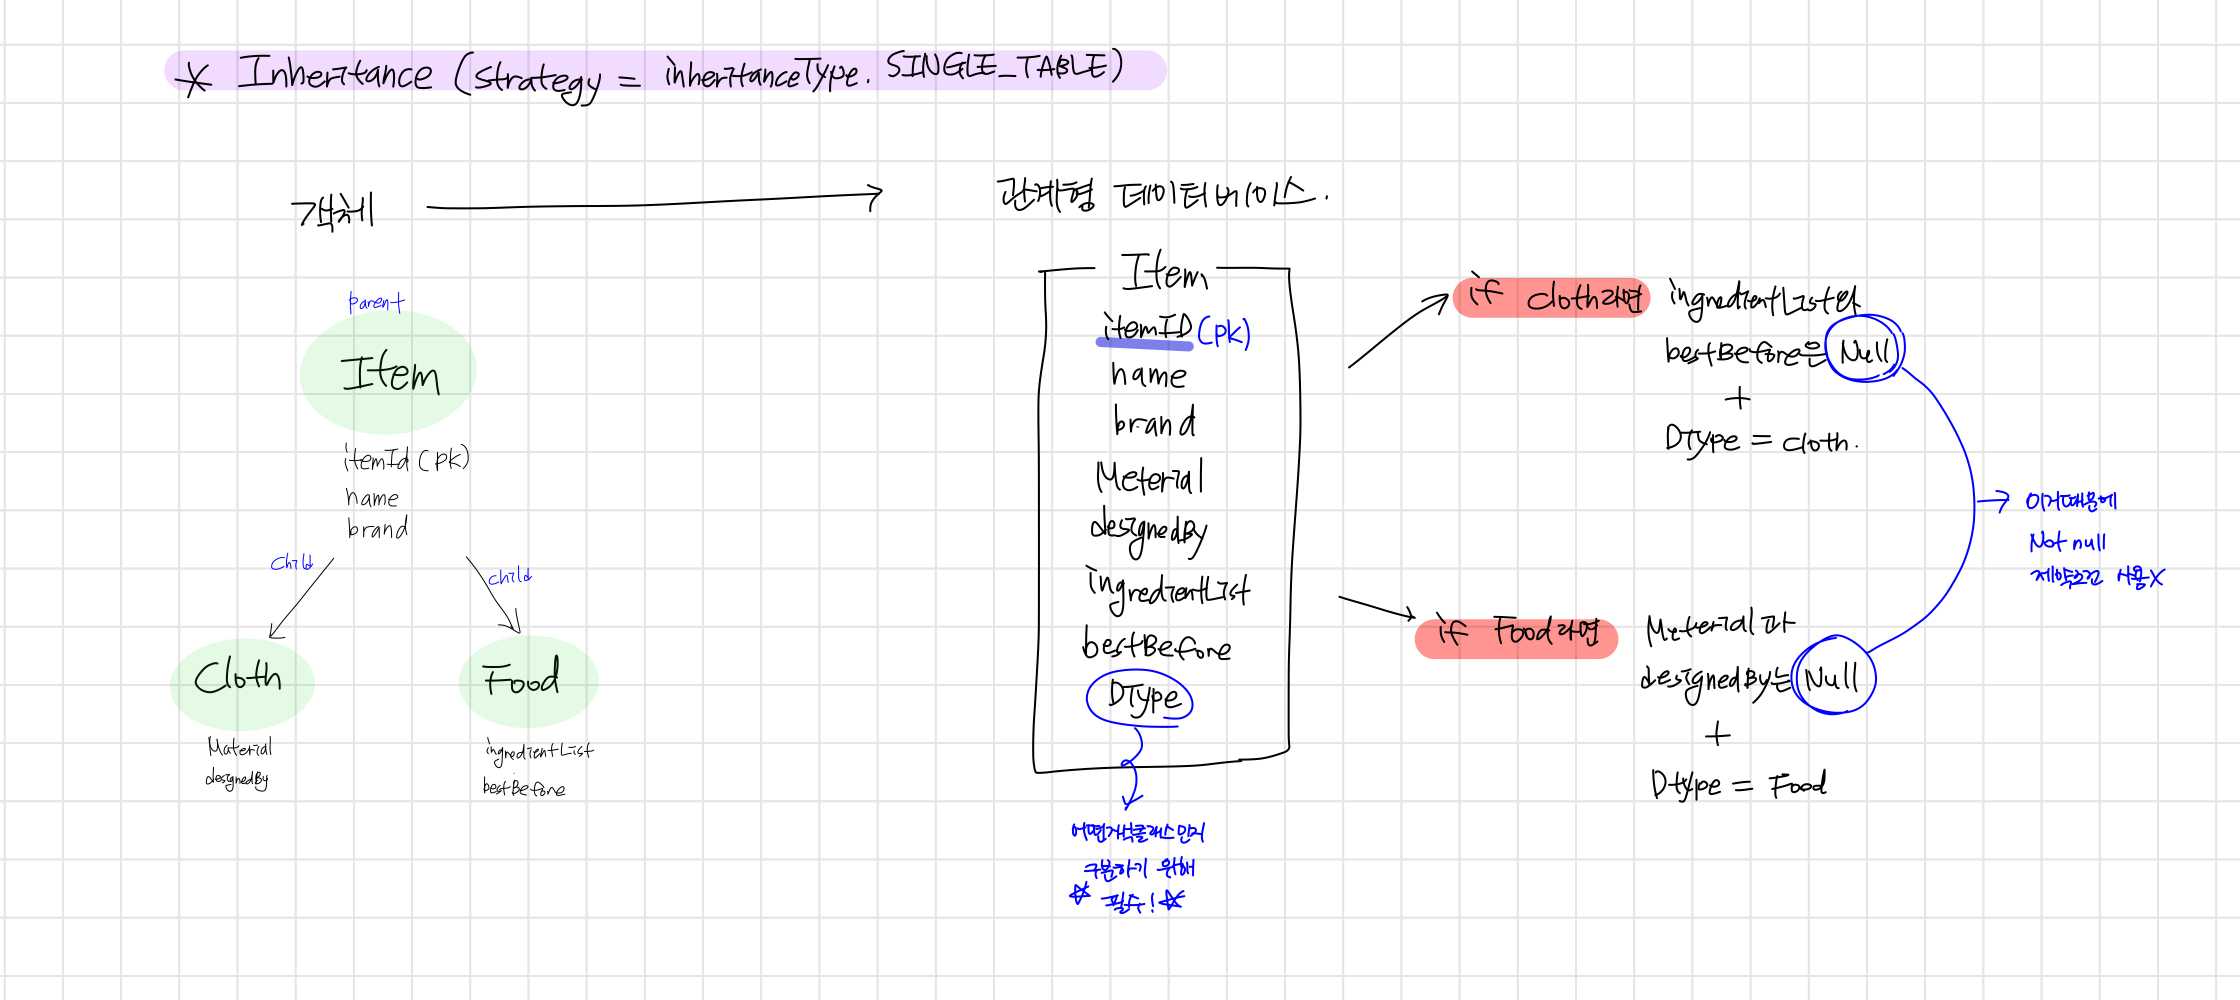 * Inheritance (strategy = inheritanceType. SINGLE_TABLE)
객체
관계형 데이터베이스.
parent
Item
itemId (pk)
name
brand
child
child
Cloth
Material
designedBy
Food
ingredientList
bestBefore
Item
itemID (pk)
name
brand
Meterial
designedBy
ingredientList
bestBefore
DType
어떤자식클래스인지
구분하기 위해
☆ 필수! ☆
if cloth라면
ingredientList와
bestBefore은 Null
+
DType = cloth.
if Food라면
Meterial과
designedBy는 Null
+
Dtype = Food
이거때문에
Not null
제약조건 사용X